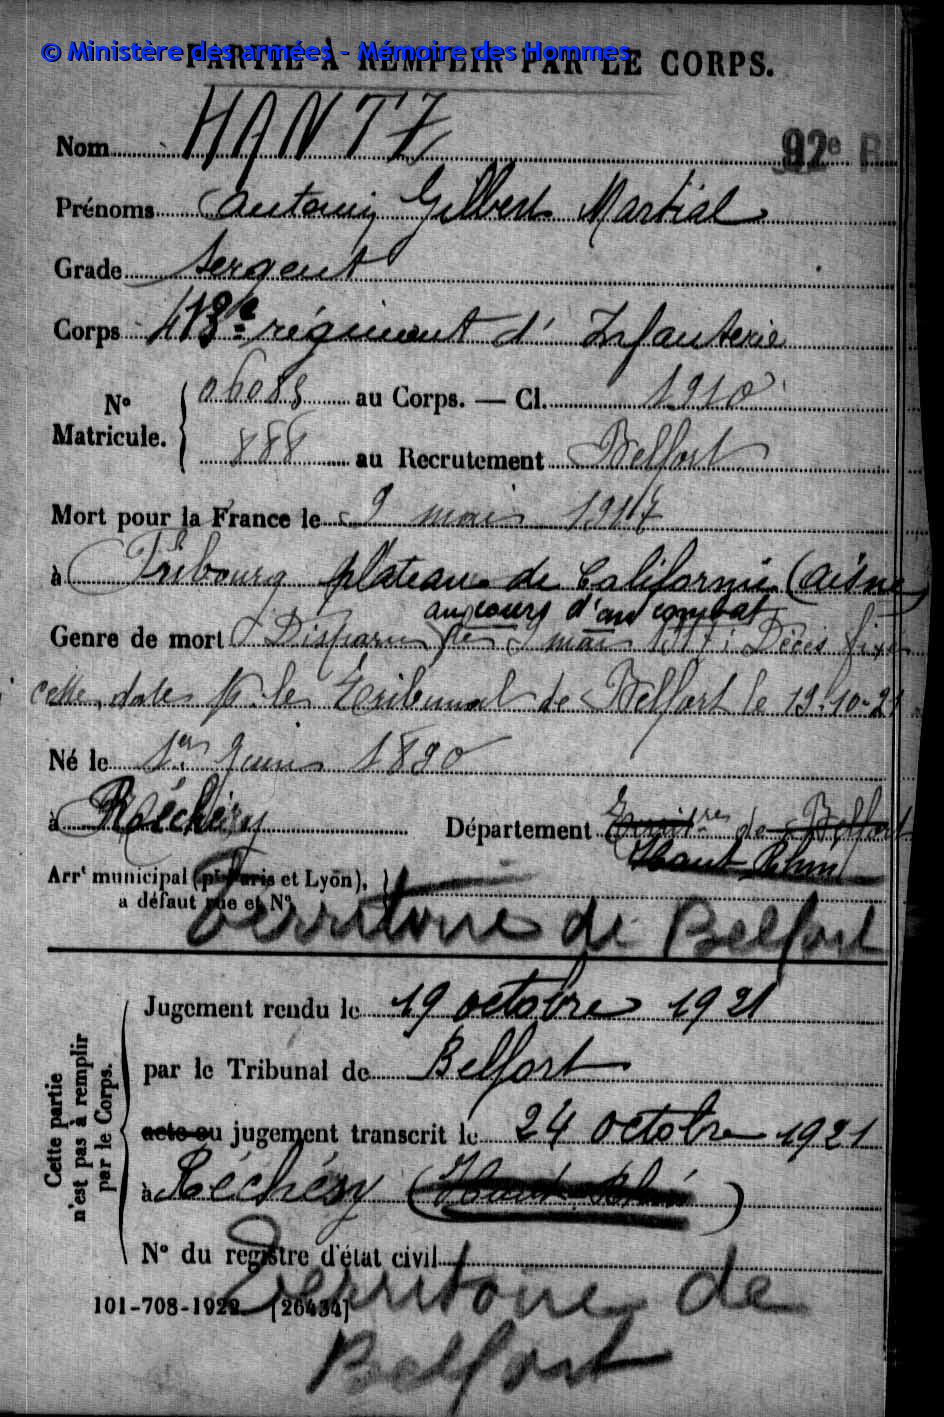 © Ministère des armées - Mémoire des Hommes
PARTIE À REMPLIR PAR LE CORPS.
Nom HANTZ
92e
Prénoms Antoine Gilbert Martial
Grade Sergent
Corps 413e régiment d'Infanterie
No Matricule. 06083 au Corps. — Cl. 1910
888 au Recrutement Belfort
Mort pour la France le 9 mai 1917
à Fribourg plateau de Californie (Aisne)
au cours d'un combat
Genre de mort Disparu le 9 mai 1917; Décès fixé
cette date p. le Tribunal de Belfort le 19-10-21
Né le 1er Juin 1890
à Réchésy Département Territre de Belfort
Haut Rhin
Arrt municipal (pr Paris et Lyon),
à défaut rue et No.
Territoire de Belfort
Cette partie n'est pas à remplir par le Corps.
Jugement rendu le 19 octobre 1921
par le Tribunal de Belfort
acte ou jugement transcrit le 24 octobre 1921
à Réchésy (Haut Rhin)
No du registre d'état civil
Territoire de
101-708-1922 [26434]
Belfort